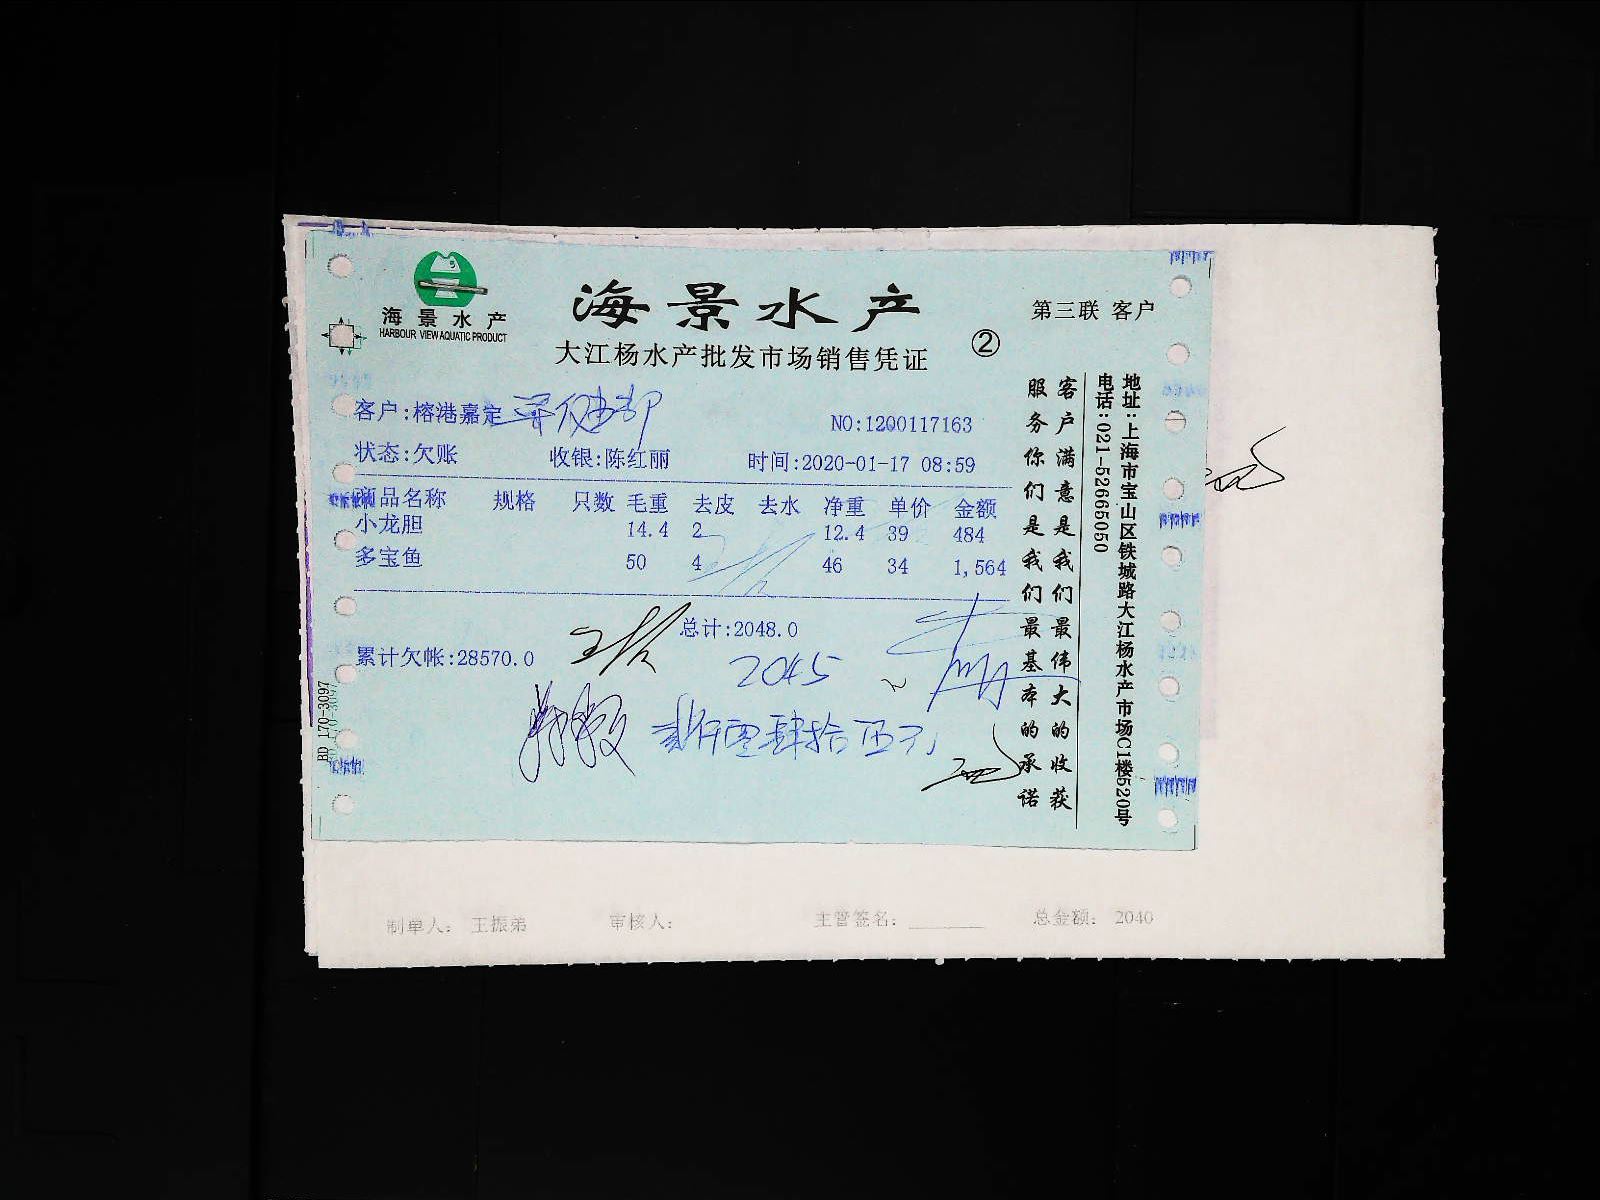 海景水产
HARBOUR VIEW AQUATIC PRODUCT
海景水产
大江杨水产批发市场销售凭证
②
第三联 客户
客户:榕港嘉定
NO:1200117163
状态:欠账 收银:陈红丽 时间:2020-01-17 08:59
商品名称 规格 只数 毛重 去皮 去水 净重 单价 金额
小龙胆 14.4 2 12.4 39 484
多宝鱼 50 4 46 34 1,564
总计:2048.0
累计欠帐:28570.0
2045
贰仟零肆拾伍元
客户满意是我们最伟大的收获
服务你们是我们最基本的承诺
地址:上海市宝山区铁城路大江杨水产市场C1楼520号
电话:021-52665050
BD 170-3097
制单人: 王振弟 审核人: 主管签名: 总金额: 2040